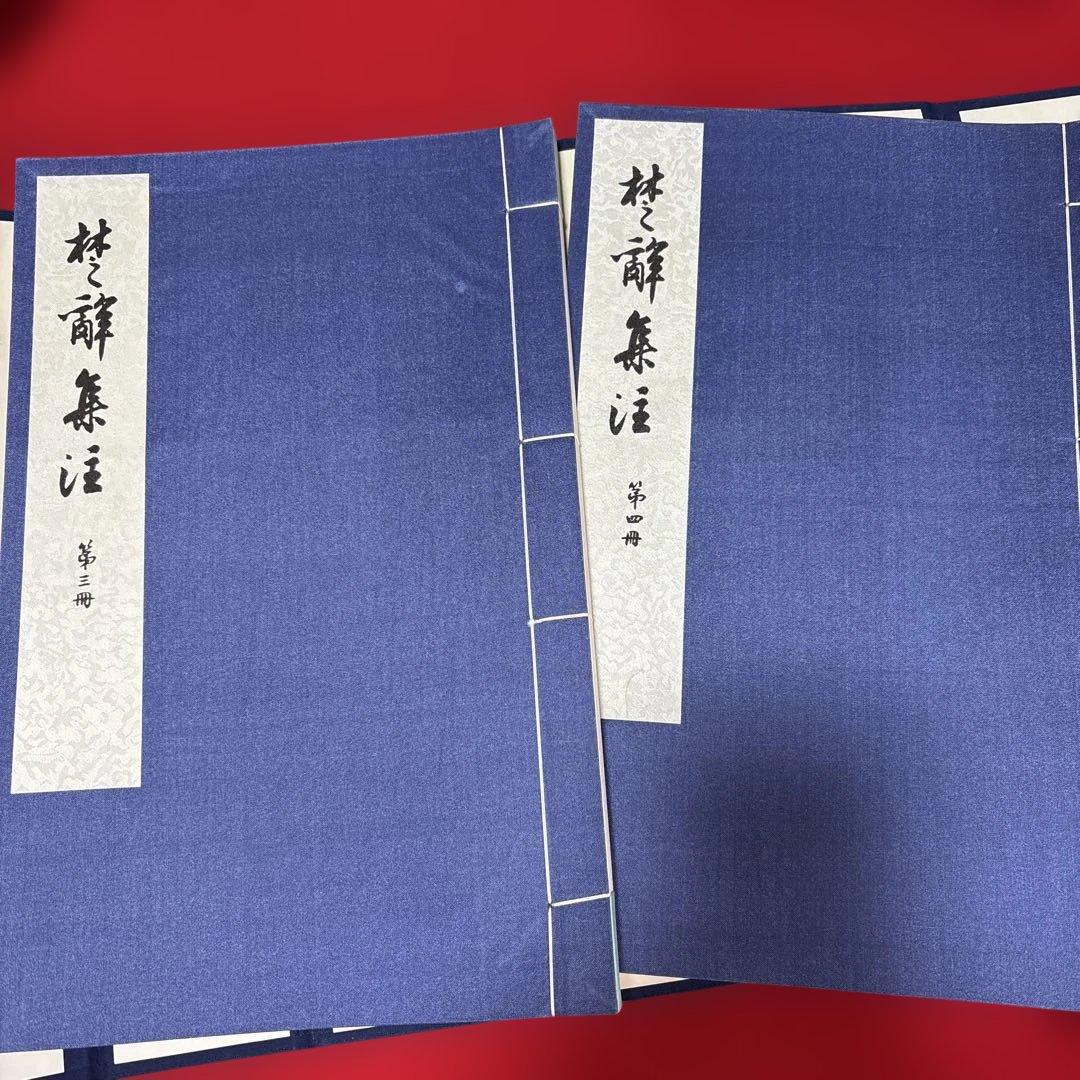 楚辭集注
第三冊
楚辭集注
第四冊